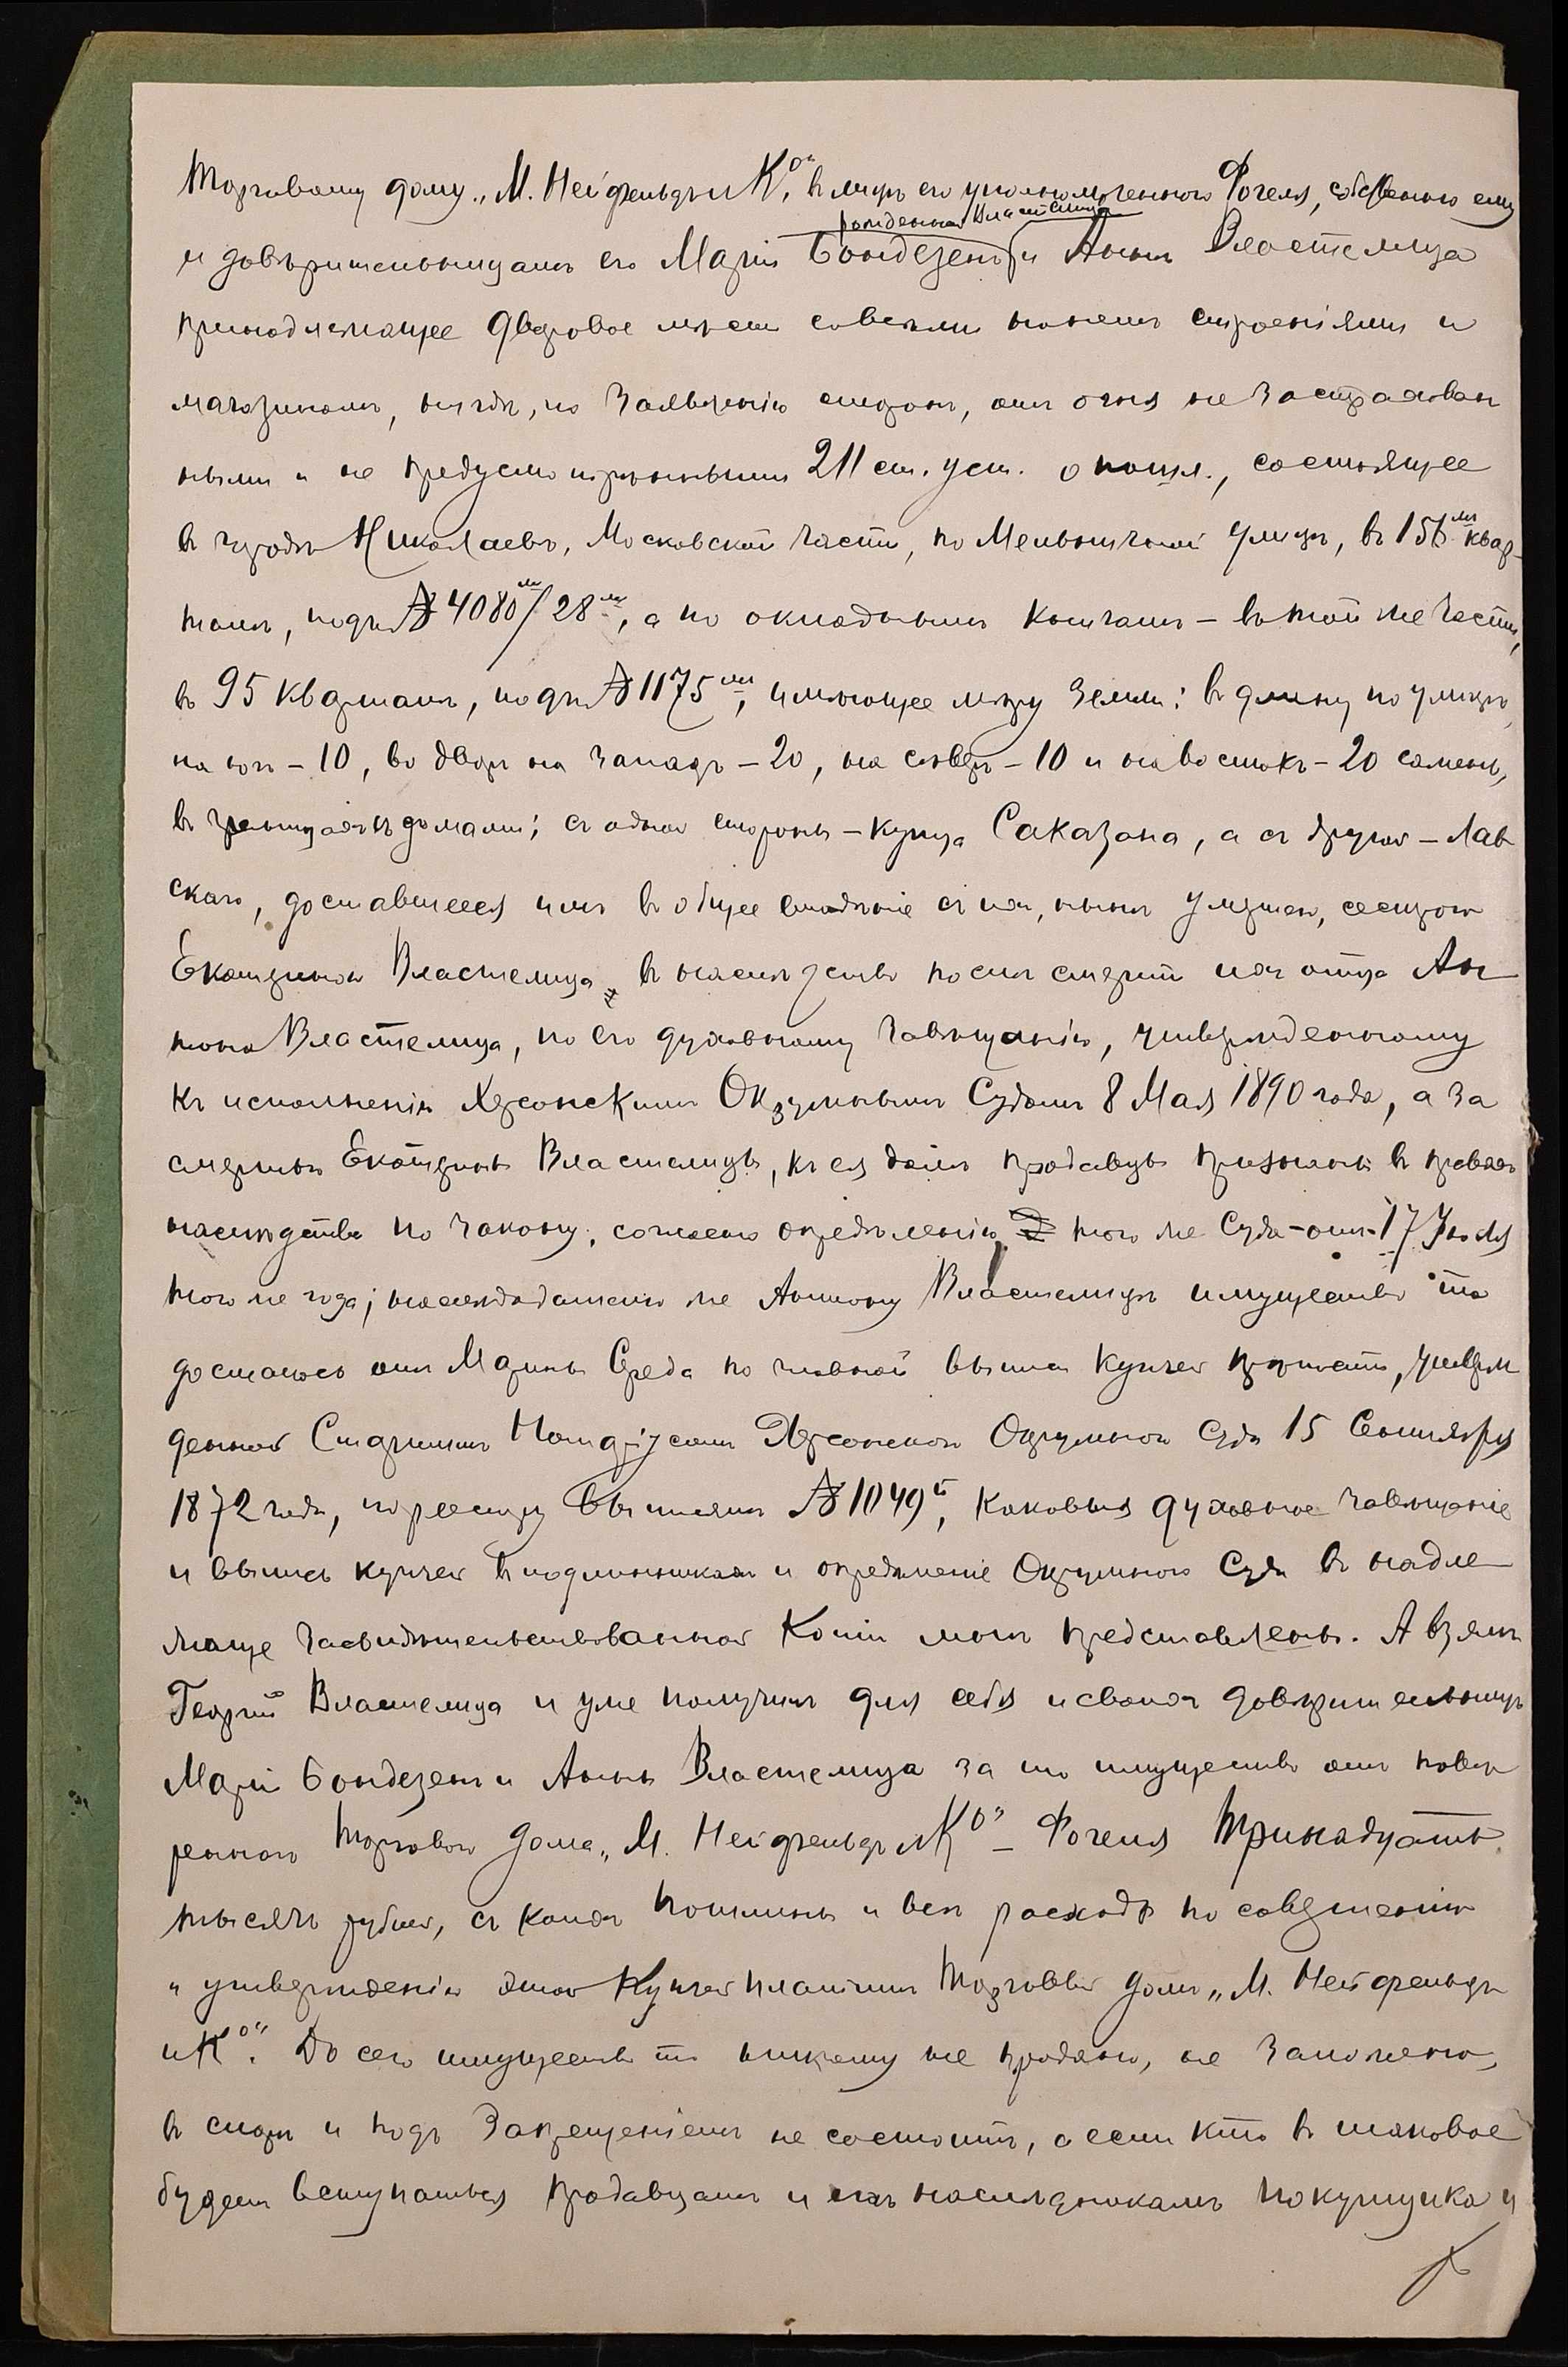 Торговому дому „М. Нейфельдъ и Кº“, въ лицѣ его уполномоченнаго Фогеля, собственно ему
рожденной Властелица
и довѣрительницамъ его Маріи Бондезенъ и Аннѣ Властелица
принадлежащее дворовое мѣсто со всѣми на немъ строеніями и
магазиномъ, нигдѣ, по заявленію сторонъ, отъ огня не застрахован
ными и не предусмотрѣнными 211 ст. уст. о пошл., состоящее
въ городѣ Николаевѣ, Московской части, по Мельничной улицѣ, въ 156мъ квар-
талѣ, подъ № 4080мъ/28мъ, а по окладнымъ книгамъ – въ той же части,
въ 95 кварталѣ, подъ № 1175мъ, имѣющее мѣру земли: въ длину по улицѣ
на югъ – 10, во дворъ на западъ – 20, на сѣверъ – 10 и на востокъ – 20 сажень,
въ границахъ домами: съ одной стороны – купца Саказана, а съ другой – Лав
скаго, доставшееся имъ въ общее владѣніе съ ихъ, нынѣ умершею, сестрою
Екатериною Властелица, въ наслѣдство послѣ смерти ихъ отца Ан
тона Властелица, по его духовному завѣщанію, утвержденному
къ исполненію Херсонскимъ Окружнымъ Судомъ 8 Мая 1890 года, а за
смертью Екатерины Властелицы, къ ея долѣ продавцы признаны въ правахъ
наслѣдства по закону, согласно опредѣленію того же Суда – отъ 17 Іюля
того же года; наслѣдодателю же Антону Властелицѣ имущество то
досталось отъ Марины Середа по главной выписи купчей крѣпости, утверж
денной Старшимъ Нотаріусомъ Херсонскаго Окружнаго Суда 15 Сентября
1872 года, по реестру выписямъ № 1049й, каковыя духовное завѣщаніе
и выпись купчей въ подлинникахъ и опредѣленіе Окружнаго Суда въ надле
жаще засвидѣтельствованной копіи мнѣ представлены. А взялъ
Георгій Властелица и уже получилъ для себя и своихъ довѣрительницъ
Маріи Бондезенъ и Анны Властелица за то имущество отъ повѣ
реннаго Торговаго дома „М. Нейфельдъ и Кº“ – Фогеля тринадцать
тысячъ рублей, съ коихъ пошлины и всѣ расходы по совершенію
и утвержденію этой купчей платитъ Торговый домъ „М. Нейфельдъ
и Кº“. До сего имущество то никому не продано, не заложено,
въ спорѣ и подъ запрещеніемъ не состоитъ, а если кто въ таковое
будетъ вступаться продавцамъ и ихъ наслѣдникамъ покупщика и